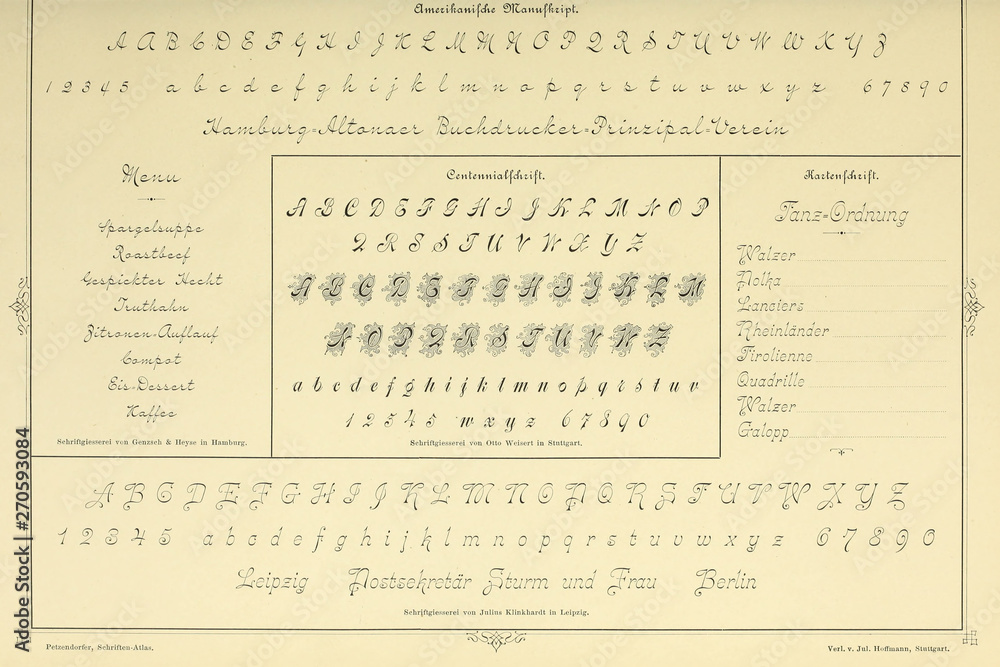 Amerikanische Manuskript.
A A B C D E F G H I J K L M M N O P Q R S T U V W W X Y Z
1 2 3 4 5 a b c d e f g h i j k l m n o p q r s t u v w x y z 6 7 8 9 0
Hamburg=Altonaer Buchdrucker=Prinzipal=Verein
Menu
Spargelsuppe
Roastbeef
Gespickter Hecht
Truthahn
Zitronen-Auflauf
Compot
Eis-Dessert
Kaffee
Schriftgiesserei von Genzsch & Heyse in Hamburg.
Centennialschrift.
A B C D E F G H I J K L M N O P
Q R S S T U V V W X Y Z
A B C D E F G H I J K L M
N O P Q R S T U V W Z
a b c d e f g h i j k l m n o p q r s t u v
1 2 3 4 5 w x y z 6 7 8 9 0
Schriftgiesserei von Otto Weisert in Stuttgart.
Kartenschrift.
Tanz=Ordnung
Walzer
Polka
Lanciers
Rheinländer
Tirolienne
Quadrille
Walzer
Galopp
A B C D E F G H I J K L M N O P Q R S T U V W X Y Z
1 2 3 4 5 a b c d e f g h i j k l m n o p q r s t u v w x y z 6 7 8 9 0
Leipzig Postsekretär Sturm und Frau Berlin
Schriftgiesserei von Julius Klinkhardt in Leipzig.
Petzendorfer, Schriften-Atlas.
Verl. v. Jul. Hoffmann, Stuttgart.
Adobe Stock | #270593084